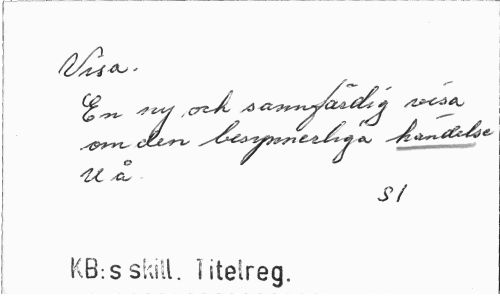 Visa.
En ny och sannfärdig visa
om den besynnerliga händelse
U å
S 1
KB:s skill. Titelreg.